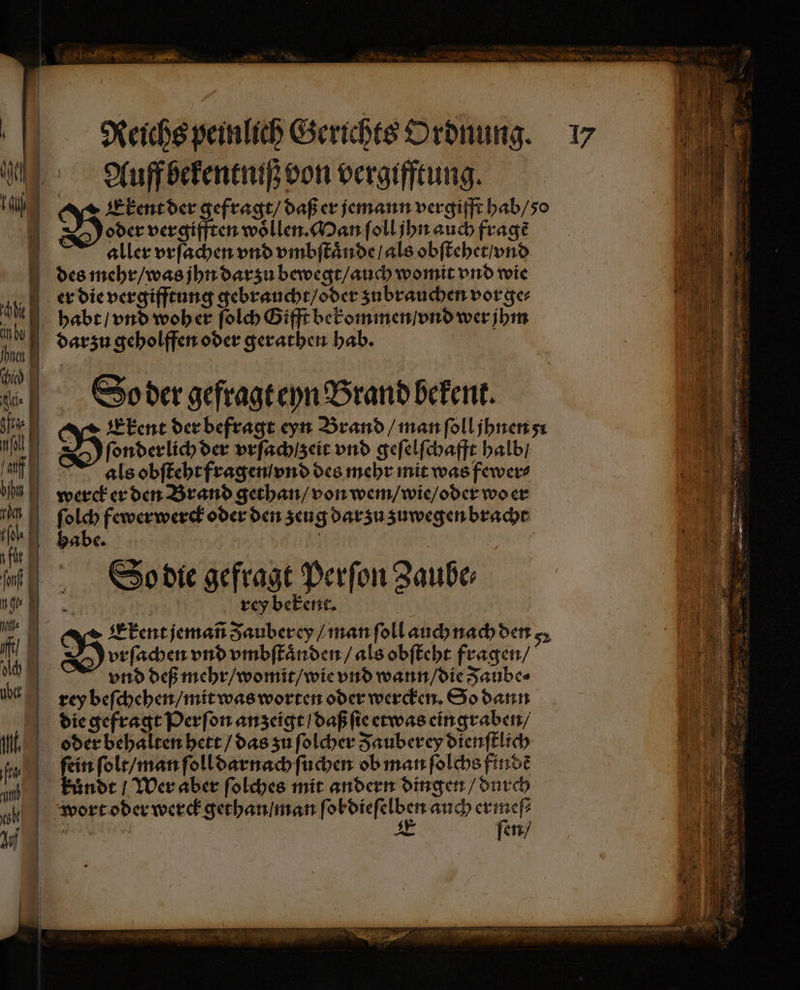 Reichs peinlich Gerichts Ordnung. 17
Auff bekentniß von vergifftung.
BEkent der gefragt/ daß er jemann vergifft hab/ 50
oder vergifften wöllen. Man soll jhn auch fragẽ
aller vrsachen vnd vmbstånde / als obstehet/vnd
des mehr/was jhn darzu bewegt/auch womit vnd wie
er die vergifftung gebraucht/oder zubrauchen vor ge⸗
habt / vnd woh er solch Gifft bekommen/vnd wer jhm
darzu geholffen oder gerathen hab.
So der gefragt eyn Brand bekent.
BEkent der befragt eyn Brand / man soll jhnen 51
sonderlich der vrsach/zeit vnd geselschafft halb/
als obsteht fragen/vnd des mehr mit was fewer⸗
werck er den Brand gethan/ von wem/wie/oder wo er
solch fewerwerck oder den zeug darzu zuwegen bracht
habe.
So die gefragt Person Zaube⸗
rey bekent.
BEkent jemañ Zauberey / man soll auch nach den 52
vrsachen vnd vmbstånden / als obsteht fragen/
vnd deß mehr/womit/wie vnd wann/die Zaube⸗
rey beschehen/mit was worten oder wercken. So dann
die gefragt Person anzeigt / daß sie etwas ein graben/
oder behalten hett / das zu solcher Zauberey dienstlich
sein solt/man soll darnach suchen ob man solchs findẽ
kůndt / Wer aber solches mit andern dingen / durch
wort oder werck gethan/man sol dieselben auch ermes⸗
E sen/